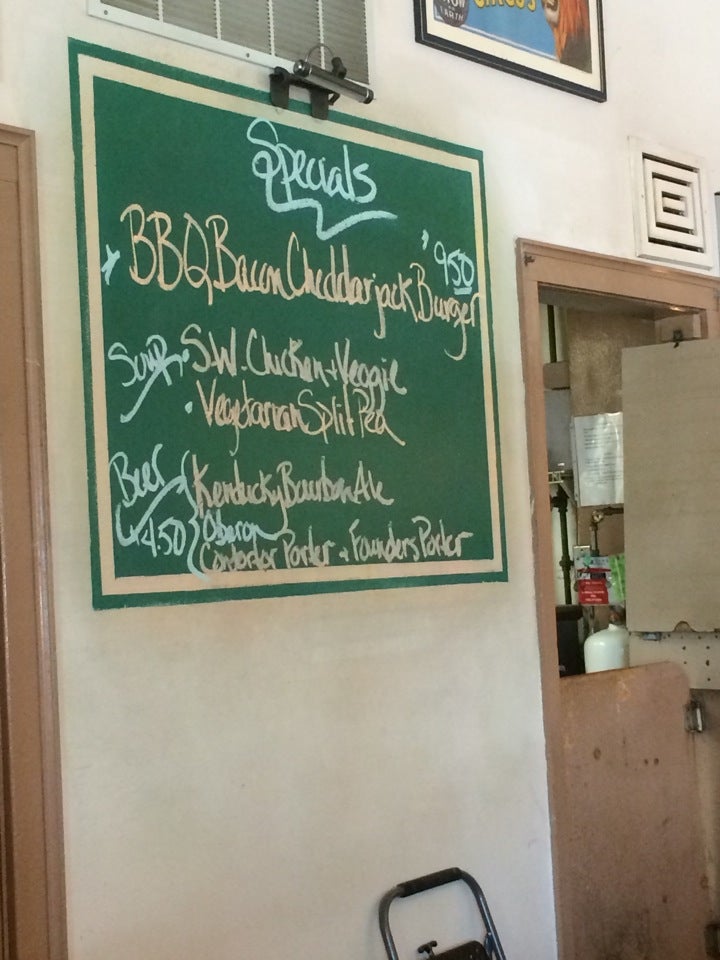 CIRCUS
EARTH
Specials
BBQ Bacon Cheddarjack Burger 950
Soup. S.W. Chicken + Veggie
. Vegetarian Split Pea
Beer Kentucky Bourbon Ale
4.50 Oberon
Porter + Founders Porter